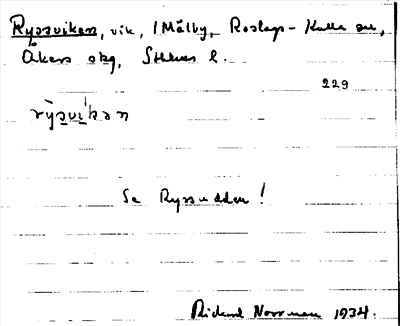 Ryssviken, vik, i Målby, Roslags-Kulla sn,
Åkers skg, Sthlms l.
229
Se Ryssudden!
Rickard Norrman 1934.